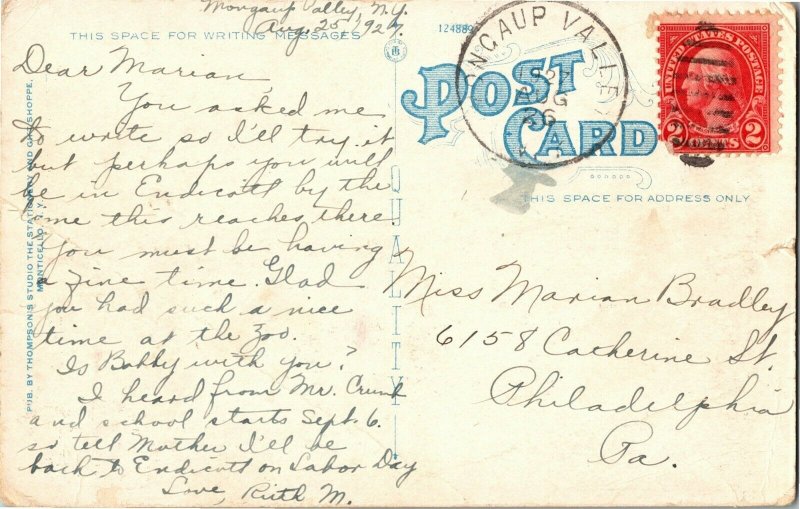 Mongaup Valley, N.Y.
Aug. 25, 1927.
THIS SPACE FOR WRITING MESSAGES
Dear Marian,
You asked me
to write so I'll try it
but perhaps you will
be in Endicott by the
time this reaches there
you must be having
a fine time. Glad
you had such a nice
time at the Zoo.
Is Bobby with you?
I heard from Mr. Crumb
and school starts Sept. 6.
so tell Mother I'll be
back to Endicott on Labor Day
Love, Ruth M.
PUB. BY THOMPSON'S STUDIO THE STATIONERY AND GIFT SHOPPE,
MONTICELLO, N.Y.
QUALITY
124889
POST
CARD
NGAUP VALLEY
1927
AUG
UNITED STATES POSTAGE
2 CENTS 2
THIS SPACE FOR ADDRESS ONLY
Miss Marian Bradley
6158 Catherine St.
Philadelphia
Pa.